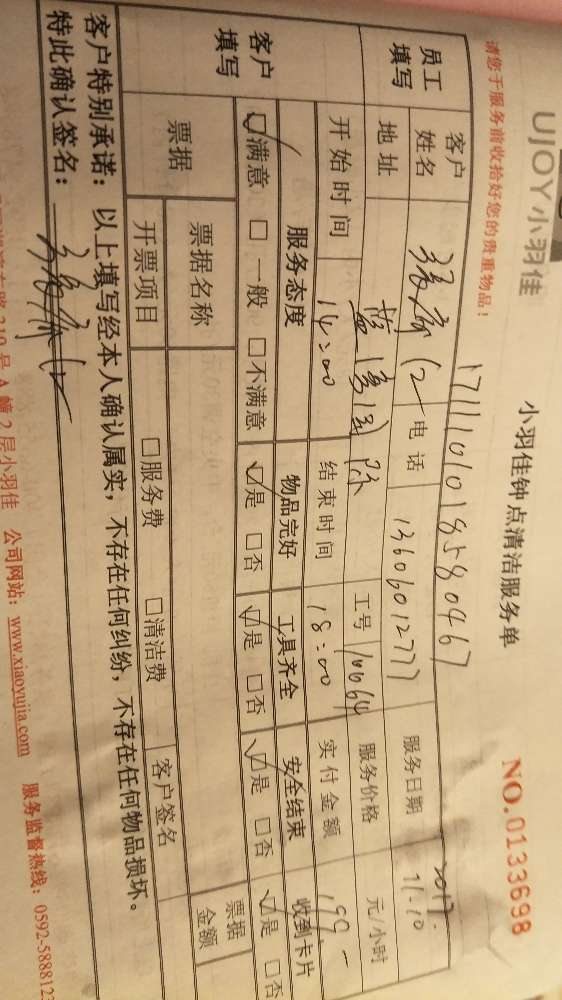 UJOY小羽佳
小羽佳钟点清洁服务单
NO.0133698
请您于服务前收拾好您的贵重物品！
1711101018580467
员工填写
客户姓名
电话 13606012777
服务日期 2017.11.10
地址
工号 10064
服务价格 元/小时
开始时间 14:00
结束时间 18:00
实付金额 199-
客户填写
服务态度 物品完好 工具齐全 安全结束 收到卡片
☑满意 □一般 □不满意 ☑是 □否 ☑是 □否 ☑是 □否 ☑是 □否
票据
票据名称
票据金额
开票项目 □服务费 □清洁费 客户签名
客户特别承诺：以上填写经本人确认属实，不存在任何纠纷，不存在任何物品损坏。
特此确认签名：
210号A幢2层小羽佳 公司网站：www.xiaoyujia.com 服务监督热线：0592-5888123